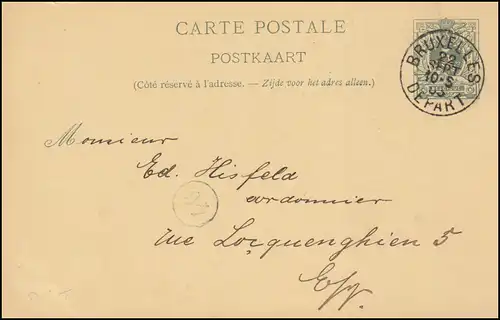 CARTE POSTALE
POSTKAART
(Côté réservé à l'adresse. — Zijde voor het adres alleen.)
BRUXELLES
22
SEPT
10-S
93
DEPART
Monsieur
Ed. Hisfeld
cordonnier
rue Locquenghien 5
E/V.